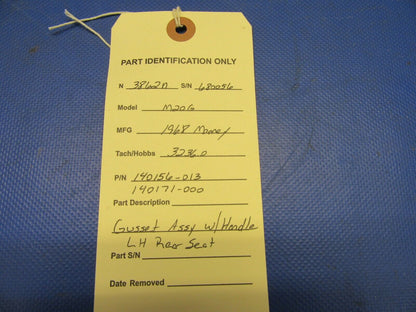 PART IDENTIFICATION ONLY
N 3862N S/N 680056
Model M20G
MFG 1968 Mooney
Tach/Hobbs 3236.0
P/N 140156-013
140171-000
Part Description
Gusset Assy w/Handle
LH Rear Seat
Part S/N
Date Removed